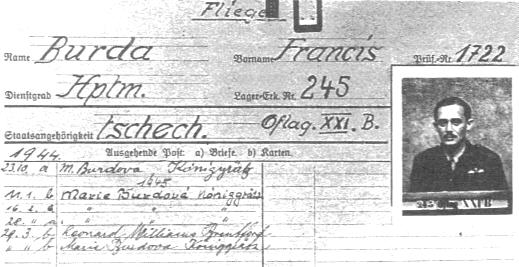 Flieger
Name Burda Vorname Francis Prüf.-Nr. 1722
Dienstgrad Hptm. Lager-Erk. Nr. 245
Staatsangehörigkeit tschech. Oflag. XXI. B.
1944. Ausgehende Post: a) Briefe. b) Karten.
23.10. a M. Burdova Königgrätz
1945
11.1. b Marie Burdová Königgrätz
16.2. a " "
20. " a " " "
29.3. b Leonard Williams
" " b Marie Burdova Königgrätz